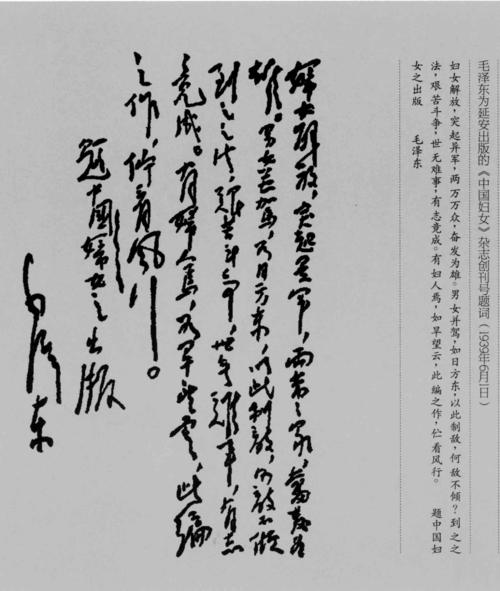 毛泽东为延安出版的《中国妇女》杂志创刊号题词（1939年6月1日）
妇女解放，突起异军，两万万众，奋发为雄。男女并驾，如日方东，以此制敌，何敌不倾？到之之
法，艰苦斗争，世无难事，有志竟成。有妇人焉，如旱望云，此编之作，伫看风行。 题中国妇
女之出版 毛泽东
婦女解放，突起异軍，兩萬〻眾，奮發為
雄。男女並駕，如日方東，以此制敵，何敵不傾
到之之法，艱苦斗爭，世無難事，有志
竟成。有婦人焉，如旱望雲，此編
之作，佇看風行。
題中國婦女之出版
毛澤東